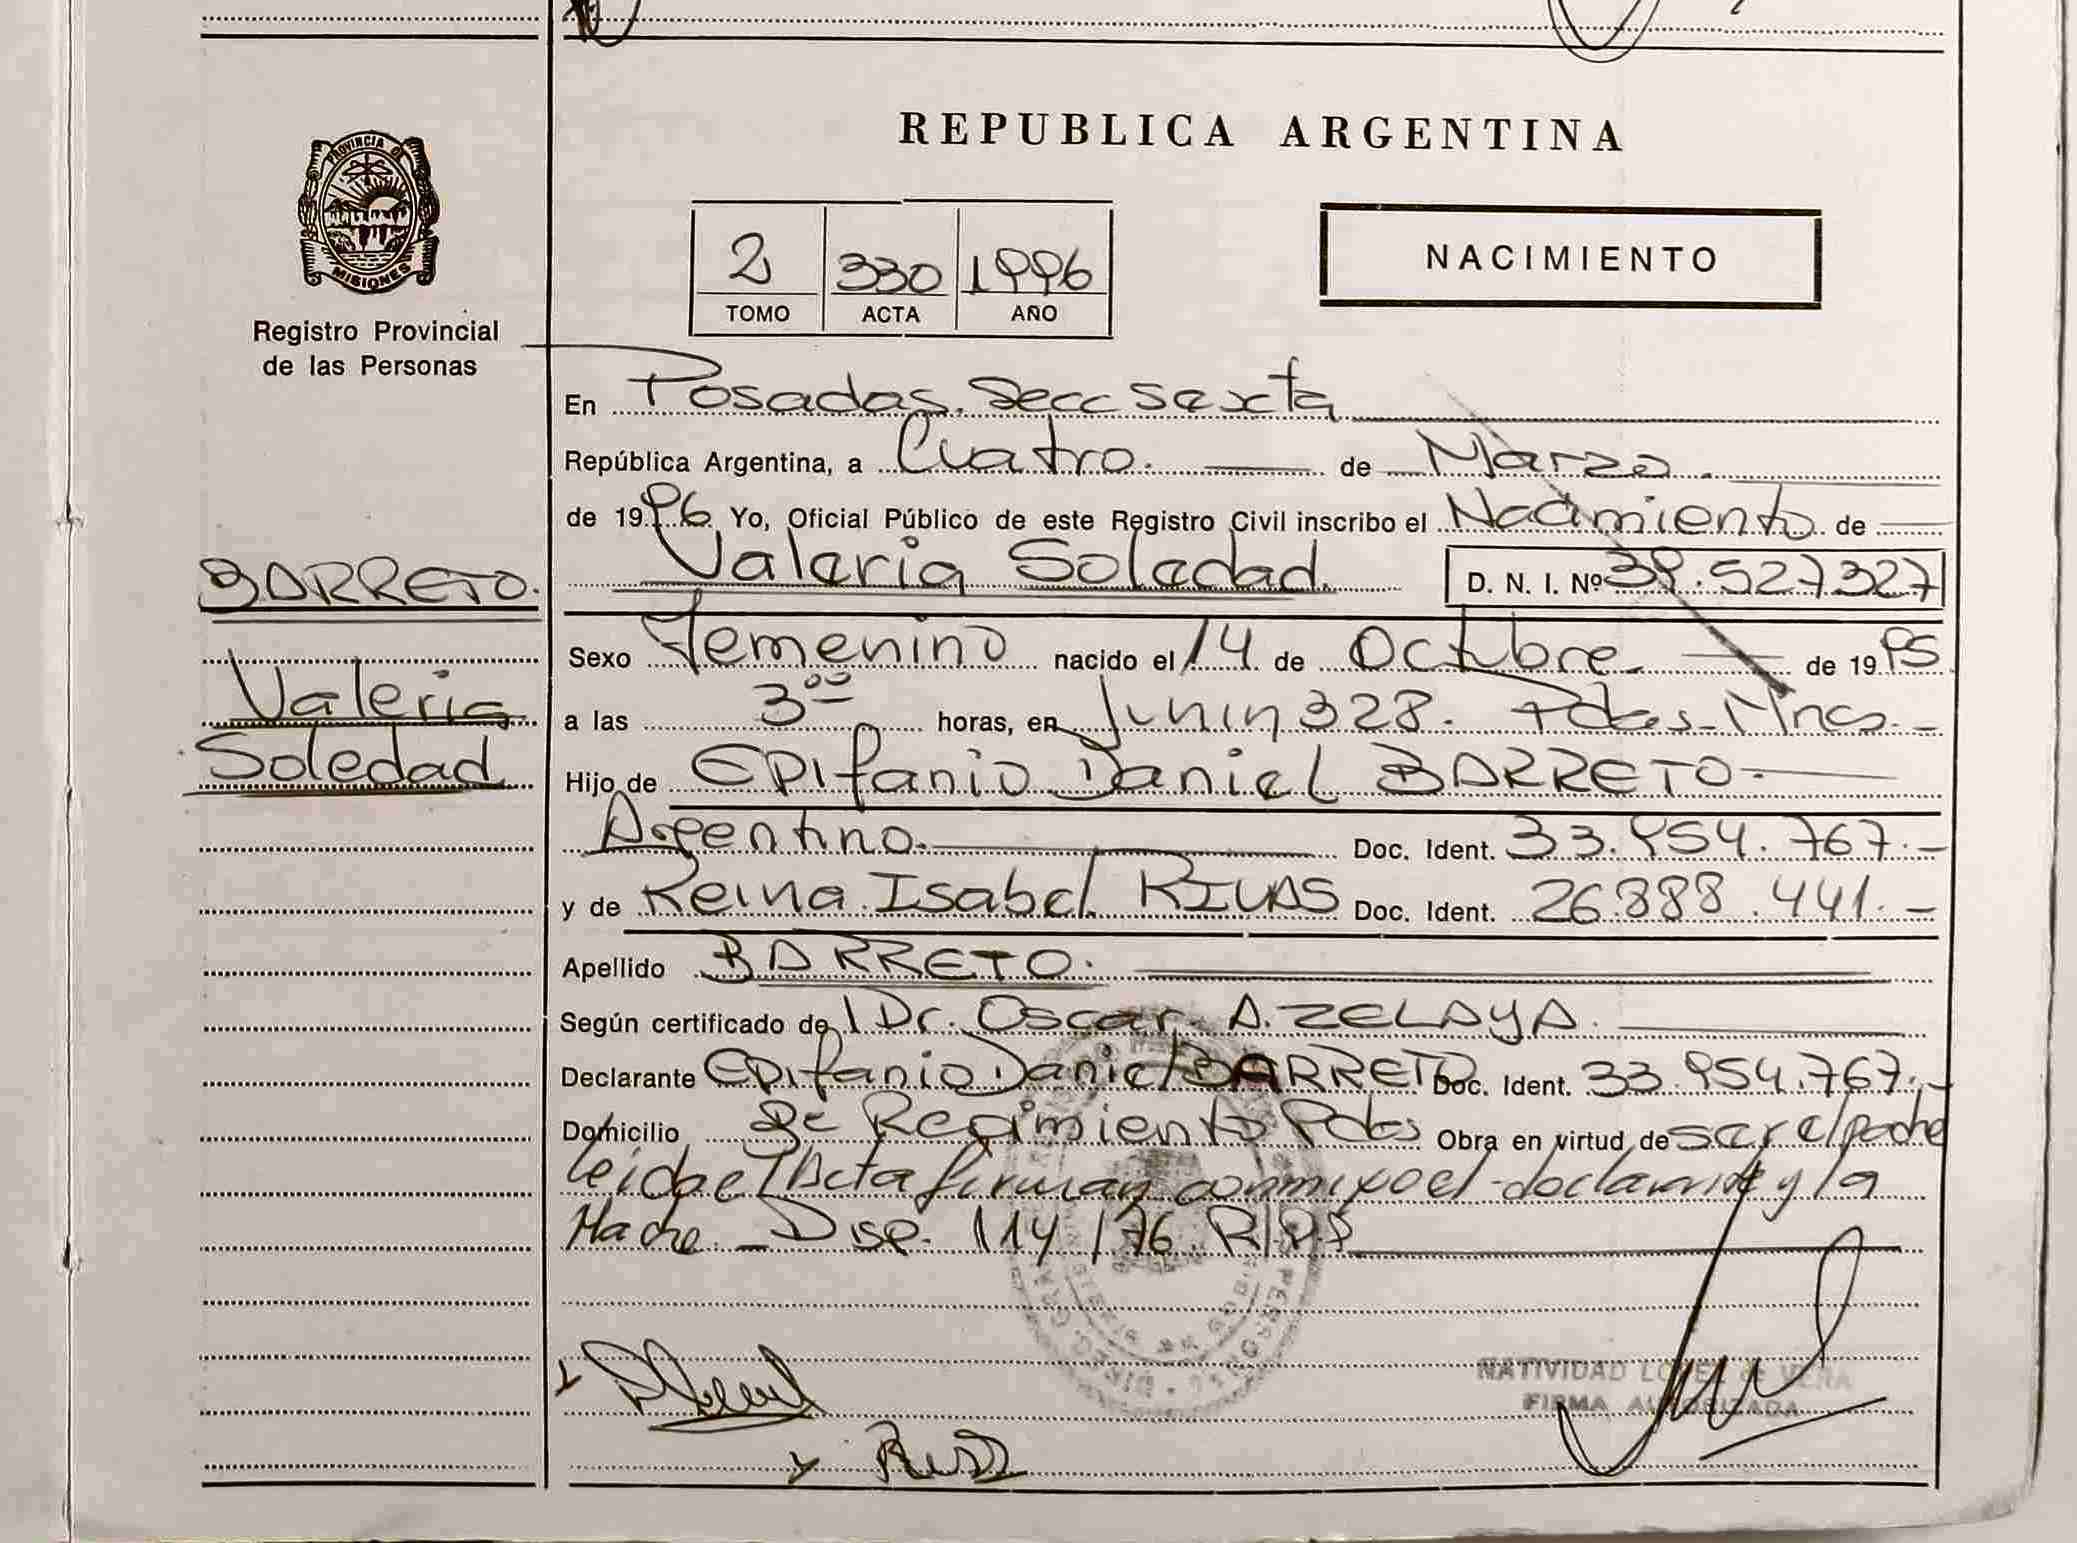 REPUBLICA ARGENTINA
PROVINCIA DE
MISIONES
Registro Provincial
de las Personas
2 330 1996
TOMO ACTA AÑO
NACIMIENTO
En Posadas. Secc Sexta
República Argentina, a Cuatro. de Marzo.
de 1996 Yo, Oficial Público de este Registro Civil inscribo el Nacimiento de
Valeria Soledad. D. N. I. Nº 39.527327
BARRETO.
Valeria
Soledad
Sexo Femenino nacido el 14 de Octubre de 1995
a las 3 00 horas, en Junin 328. Pdas-Mnes.-
Hijo de Epifanio Daniel BARRETO.
Argentino. Doc. Ident. 33.954.767.-
y de Reina Isabel RIVAS Doc. Ident. 26.888.441.-
Apellido BARRETO.
Según certificado del Dr. Oscar A. ZELAYA.
Declarante Epifanio Daniel BARRETO Doc. Ident. 33.954.767.-
Domicilio Regimiento Pdas Obra en virtud de ser el padre
leida el Acta firman conmigo el declarante y la
Madre. - Disp. 114/76
NATIVIDAD LOPEZ de VERA
FIRMA AUTORIZADA